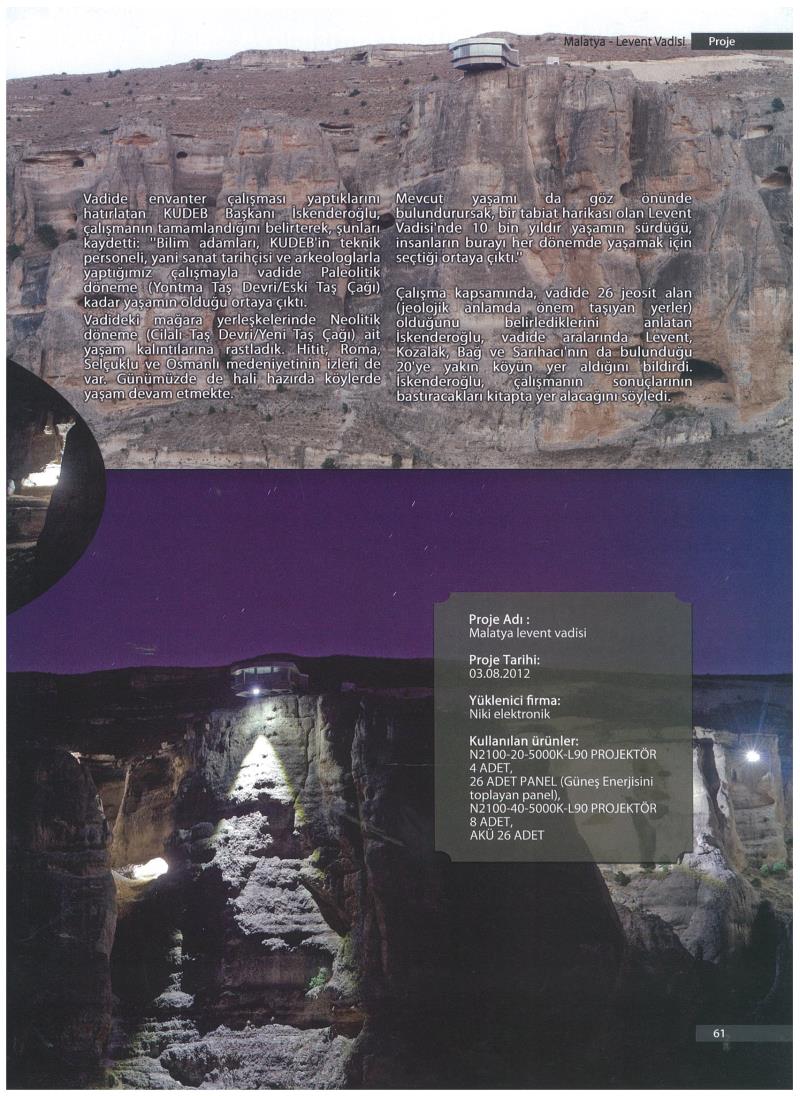 Malatya - Levent Vadisi Proje
Vadide envanter çalışması yaptıklarını
hatırlatan KUDEB Başkanı İskenderoğlu,
çalışmanın tamamlandığını belirterek, şunları
kaydetti: "Bilim adamları, KUDEB'in teknik
personeli, yani sanat tarihçisi ve arkeologlarla
yaptığımız çalışmayla vadide Paleolitik
döneme (Yontma Taş Devri/Eski Taş Çağı)
kadar yaşamın olduğu ortaya çıktı.
Vadideki mağara yerleşkelerinde Neolitik
döneme (Cilalı Taş Devri/Yeni Taş Çağı) ait
yaşam kalıntılarına rastladık. Hitit, Roma,
Selçuklu ve Osmanlı medeniyetinin izleri de
var. Günümüzde de hali hazırda köylerde
yaşam devam etmekte.
Mevcut yaşamı da göz önünde
bulundurursak, bir tabiat harikası olan Levent
Vadisi'nde 10 bin yıldır yaşamın sürdüğü,
insanların burayı her dönemde yaşamak için
seçtiği ortaya çıktı."
Çalışma kapsamında, vadide 26 jeosit alan
(jeolojik anlamda önem taşıyan yerler)
olduğunu belirlediklerini anlatan
İskenderoğlu, vadide aralarında Levent,
Kozalak, Bağ ve Sarıhacı'nın da bulunduğu
20'ye yakın köyün yer aldığını bildirdi.
İskenderoğlu, çalışmanın sonuçlarının
bastıracakları kitapta yer alacağını söyledi.
Proje Adı :
Malatya levent vadisi
Proje Tarihi:
03.08.2012
Yüklenici firma:
Niki elektronik
Kullanılan ürünler:
N2100-20-5000K-L90 PROJEKTÖR
4 ADET,
26 ADET PANEL (Güneş Enerjisini
toplayan panel),
N2100-40-5000K-L90 PROJEKTÖR
8 ADET,
AKÜ 26 ADET
61